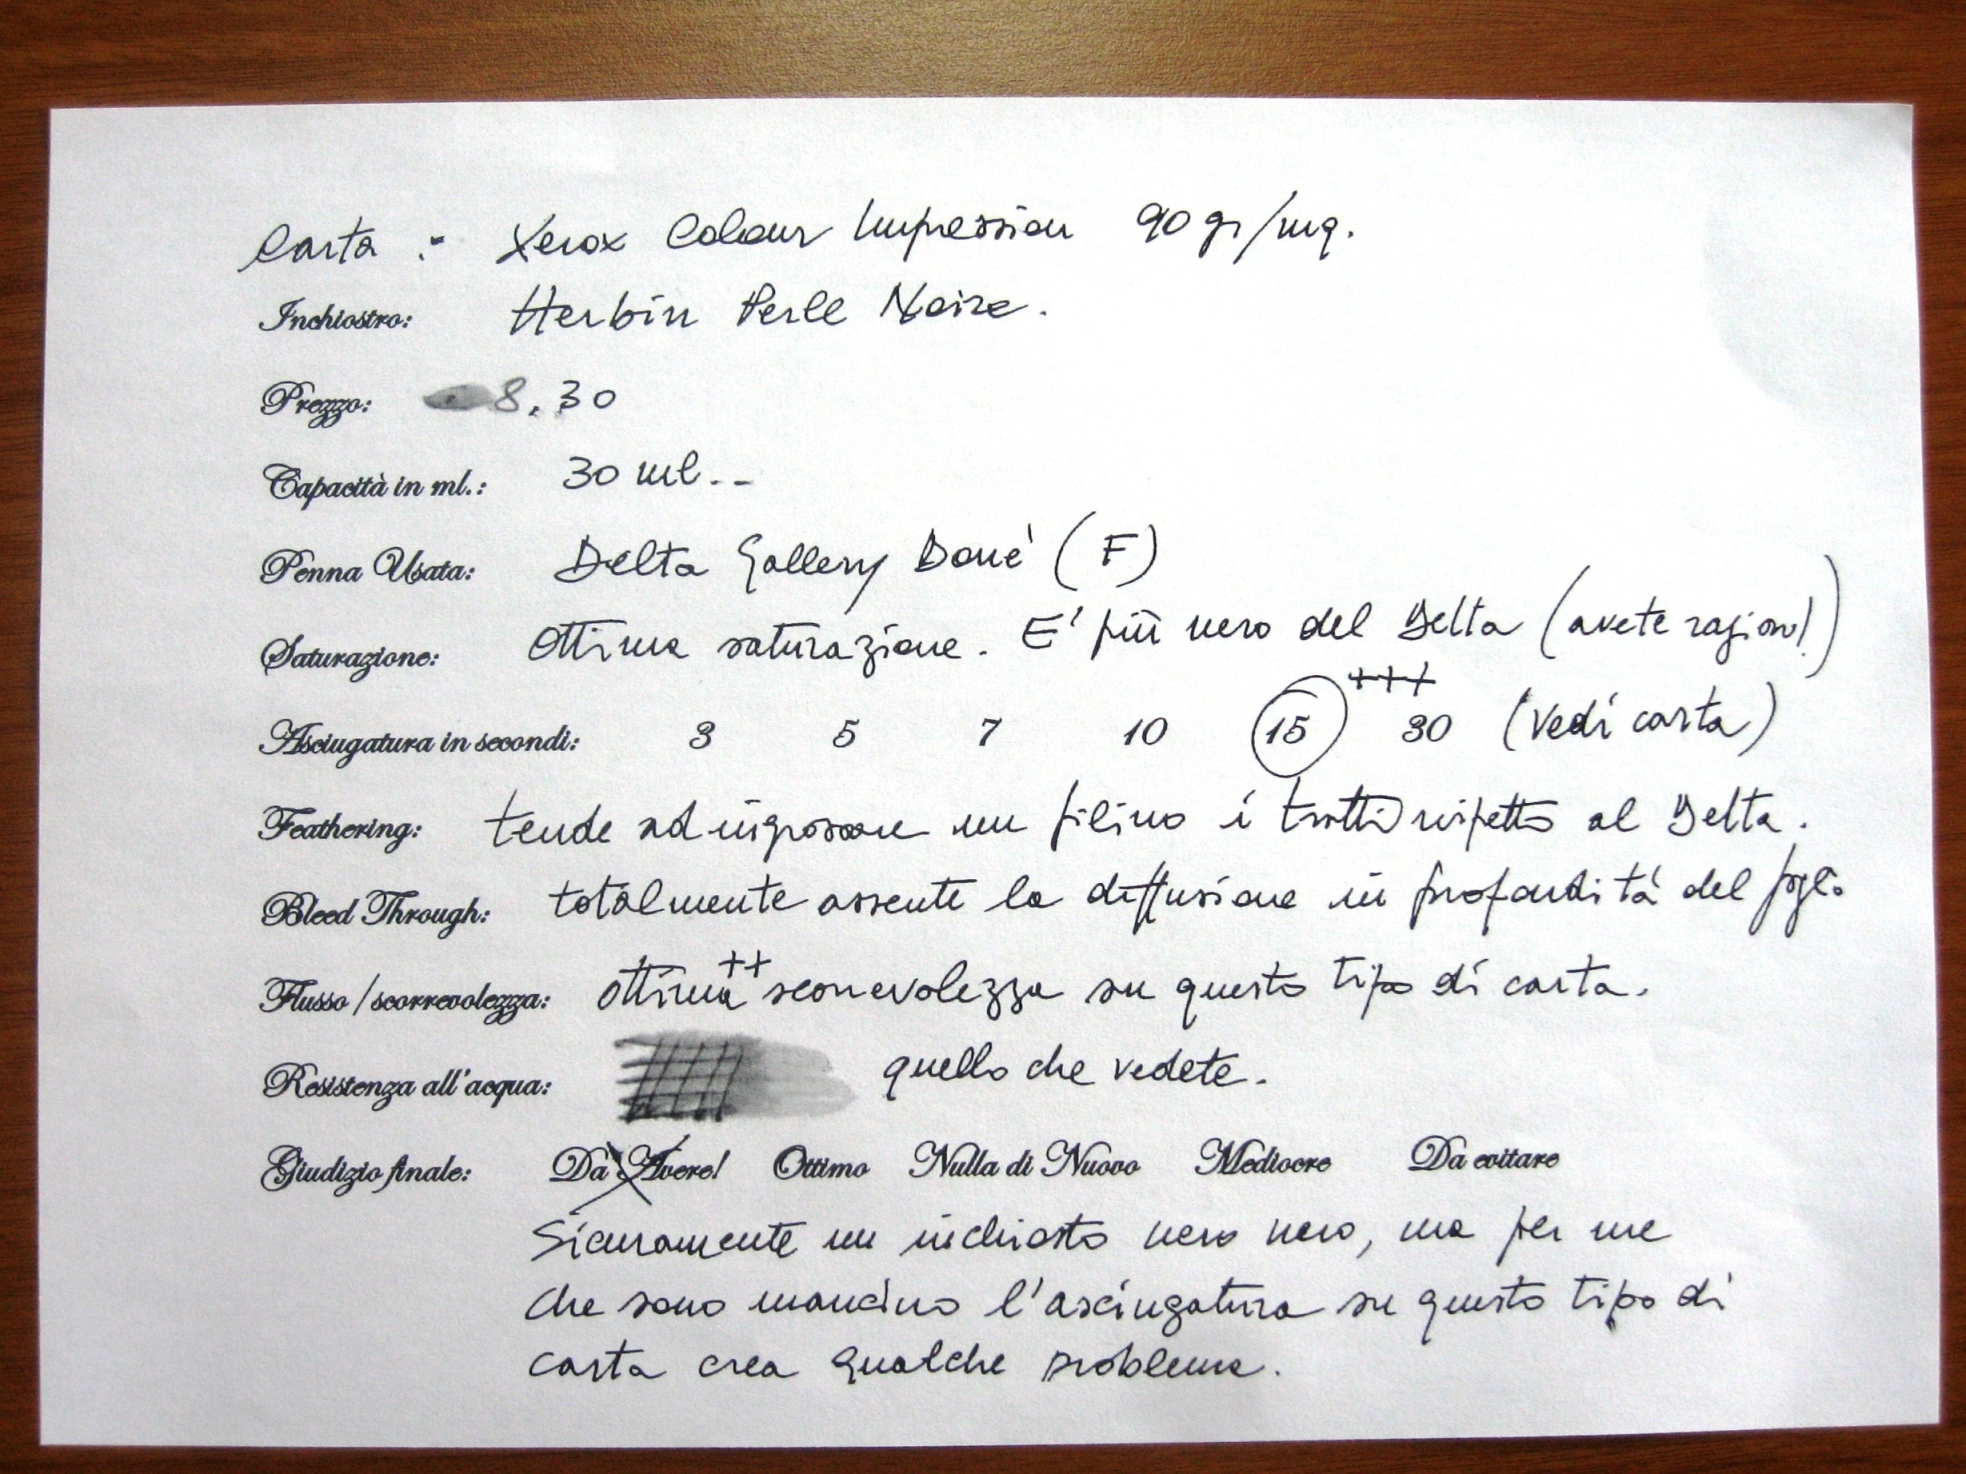 Carta : Xerox Colour Impression 90 gr/mq.
Inchiostro: Herbin Perle Noire.
Prezzo: 8,30
Capacità in ml.: 30 ml..
Penna Usata: Delta Gallery Doué (F)
Saturazione: Ottima saturazione. E' più nero del Delta (avete ragione!)
Asciugatura in secondi: 3 5 7 10 15 +++ 30 (Vedi carta)
Feathering: tende ad ingrossare un filino i tratti rispetto al Delta.
Bleed Through: totalmente assente la diffusione in profondità del foglio
Flusso / scorrevolezza: Ottima ++ scorrevolezza su questo tipo di carta.
Resistenza all'acqua: quello che vedete.
Giudizio finale: Da Avere! Ottimo Nulla di Nuovo Mediocre Da evitare
Sicuramente un inchiostro nero nero, ma per me
che sono mancino l'asciugatura su questo tipo di
carta crea qualche problema.